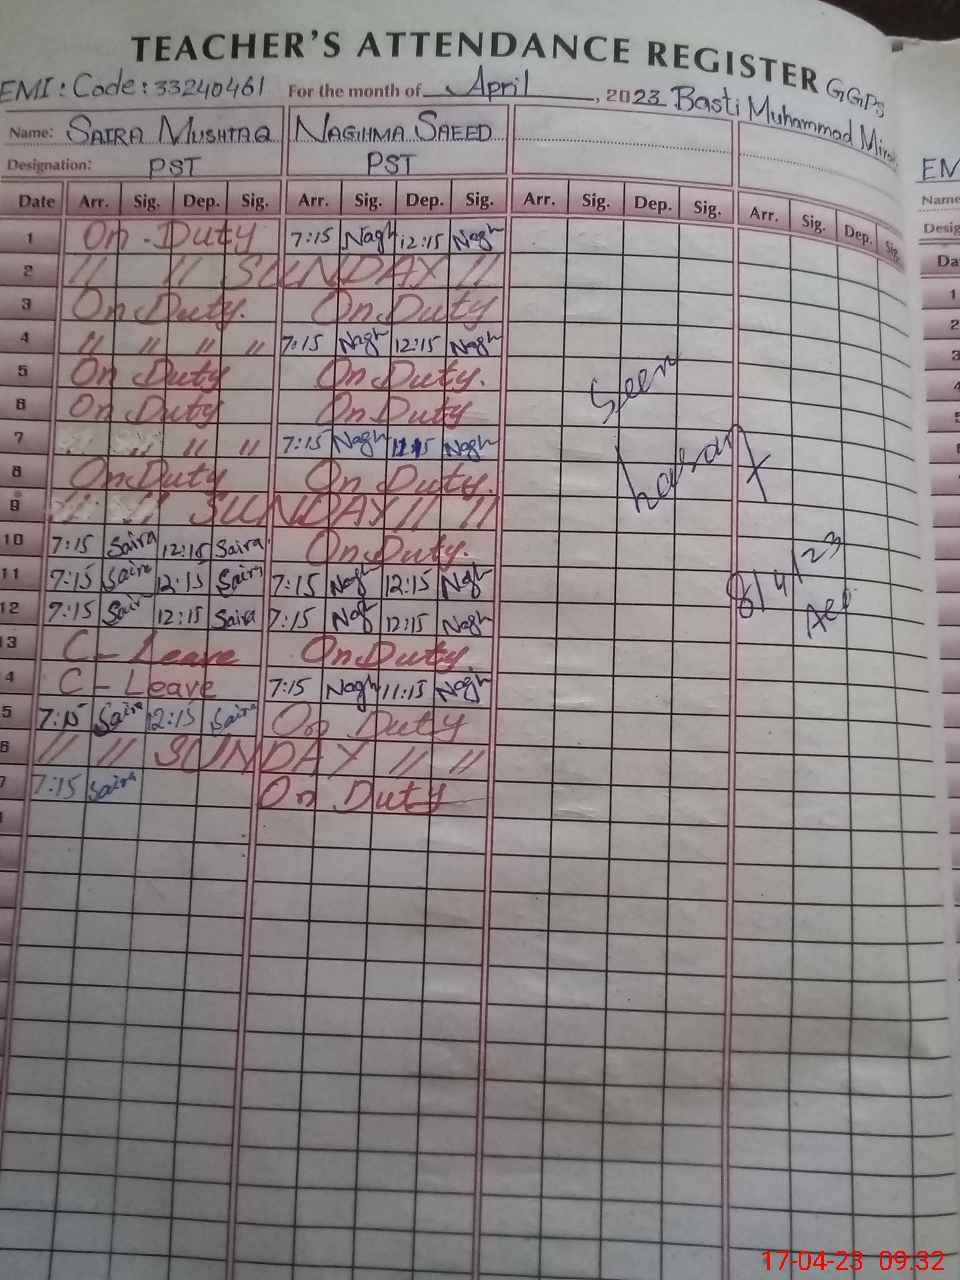 TEACHER'S ATTENDANCE REGISTER GGPS
EMI: Code: 33240461 For the month of April, 2023 Basti Muhammad
Name: SAIRA MUSHTAQ NAGHMA SAEED
Designation: PST PST
Date Arr. Sig. Dep. Sig. Arr. Sig. Dep. Sig. Arr. Sig. Dep. Sig. Arr. Sig. Dep. Sig.
1 On-Duty 7:15 Nagh 12:15 Nagh
2 // // SUNDAY //
3 On Duty. On Duty
4 // // // // 7:15 Nagh 12:15 Nagh
5 On Duty On Duty.
6 On Duty On Duty.
7 // // 7:15 Nagh Nagh
8 On Duty On Duty.
9 // // SUNDAY // //
10 7:15 Saira 12:15 Saira On Duty.
11 7:15 Saira 12:15 Saira 7:15 Nagh 12:15 Nagh
12 7:15 Saira 12:15 Saira 7:15 Nagh 12:15 Nagh
3 C-Leave On Duty.
4 C-Leave 7:15 Nagh 11:15 Nagh
5 7:15 Saira 12:15 Saira On Duty
6 // // SUNDAY // //
7 7:15 Saira On Duty
Seen
8/4/23
EM
Name
Desig
Da
1
2
3
4
5
17-04-23 09:32